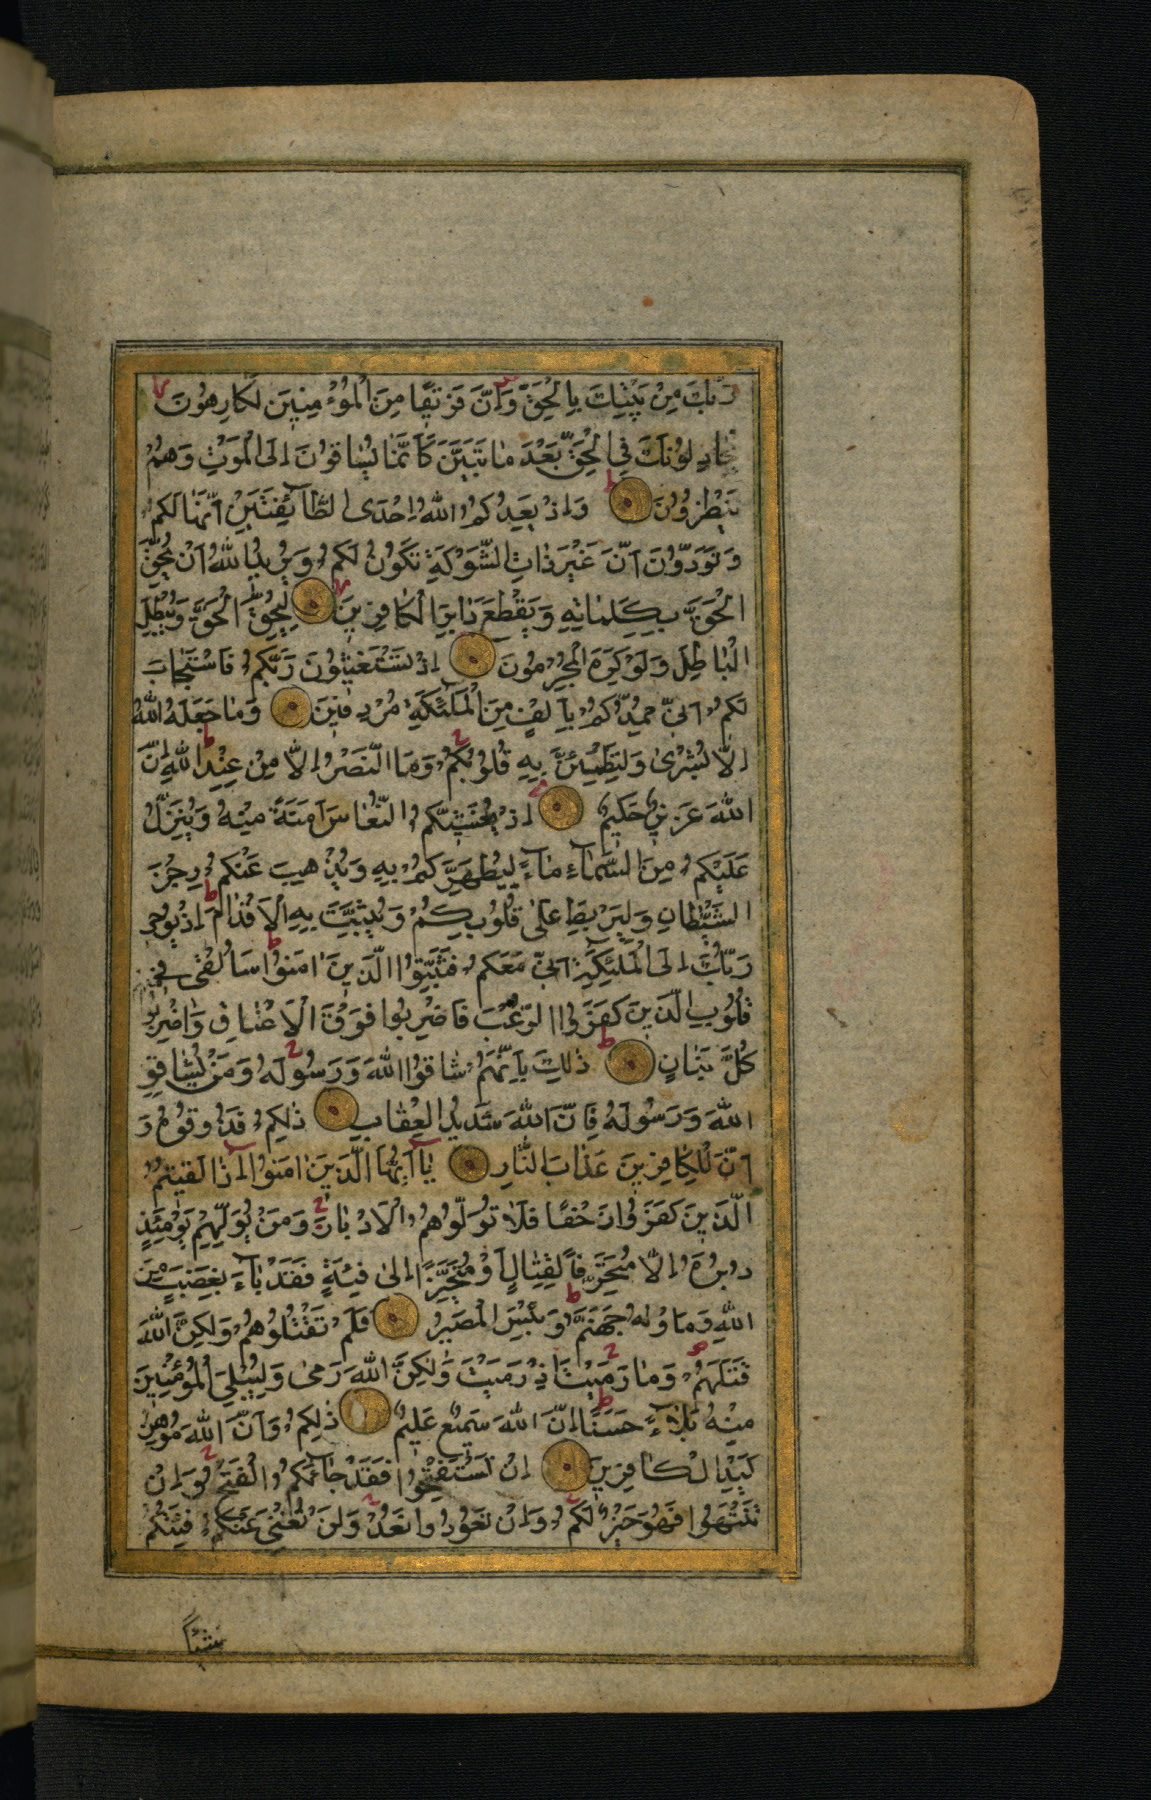 رَبُّكَ مِنْ بَيْتِكَ بِالْحَقِّ وَاِنَّ فَرِيقًا مِنَ الْمُؤْمِنِينَ لَكَارِهُونَ
يُجَادِلُونَكَ فِي الْحَقِّ بَعْدَ مَا تَبَيَّنَ كَاَنَّمَا يُسَاقُونَ اِلَى الْمَوْتِ وَهُمْ
يَنْظُرُونَ وَاِذْ يَعِدُكُمُ اللّٰهُ اِحْدَى الطَّآئِفَتَيْنِ اَنَّهَا لَكُمْ
وَتَوَدُّونَ اَنَّ غَيْرَ ذَاتِ الشَّوْكَةِ تَكُونُ لَكُمْ وَيُرِيدُ اللّٰهُ اَنْ يُحِقَّ
الْحَقَّ بِكَلِمَاتِهِ وَيَقْطَعَ دَابِرَ الْكَافِرِينَ لِيُحِقَّ الْحَقَّ وَيُبْطِلَ
الْبَاطِلَ وَلَوْ كَرِهَ الْمُجْرِمُونَ اِذْ تَسْتَغِيثُونَ رَبَّكُمْ فَاسْتَجَابَ
لَكُمْ اَنِّي مُمِدُّكُمْ بِاَلْفٍ مِنَ الْمَلٰئِكَةِ مُرْدِفِينَ وَمَا جَعَلَهُ اللّٰهُ
اِلَّا بُشْرٰى وَلِتَطْمَئِنَّ بِهِ قُلُوبُكُمْ وَمَا النَّصْرُ اِلَّا مِنْ عِنْدِ اللّٰهِ اِنَّ
اللّٰهَ عَزِيزٌ حَكِيمٌ اِذْ يُغَشِّيكُمُ النُّعَاسَ اَمَنَةً مِنْهُ وَيُنَزِّلُ
عَلَيْكُمْ مِنَ السَّمَآءِ مَآءً لِيُطَهِّرَكُمْ بِهِ وَيُذْهِبَ عَنْكُمْ رِجْزَ
الشَّيْطَانِ وَلِيَرْبِطَ عَلٰى قُلُوبِكُمْ وَيُثَبِّتَ بِهِ الْاَقْدَامَ اِذْ يُوحِي
رَبُّكَ اِلَى الْمَلٰئِكَةِ اَنِّي مَعَكُمْ فَثَبِّتُوا الَّذِينَ اٰمَنُوا سَاُلْقِي فِي
قُلُوبِ الَّذِينَ كَفَرُوا الرُّعْبَ فَاضْرِبُوا فَوْقَ الْاَعْنَاقِ وَاضْرِبُوا
كُلَّ بَنَانٍ ذٰلِكَ بِاَنَّهُمْ شَاقُّوا اللّٰهَ وَرَسُولَهُ وَمَنْ يُشَاقِقِ
اللّٰهَ وَرَسُولَهُ فَاِنَّ اللّٰهَ شَدِيدُ الْعِقَابِ ذٰلِكُمْ فَذُوقُوهُ وَ
اَنَّ لِلْكَافِرِينَ عَذَابَ النَّارِ يَا اَيُّهَا الَّذِينَ اٰمَنُوا اِذَا لَقِيتُمُ
الَّذِينَ كَفَرُوا زَحْفًا فَلَا تُوَلُّوهُمُ الْاَدْبَارَ وَمَنْ يُوَلِّهِمْ يَوْمَئِذٍ
دُبُرَهُ اِلَّا مُتَحَرِّفًا لِقِتَالٍ اَوْ مُتَحَيِّزًا اِلٰى فِئَةٍ فَقَدْ بَآءَ بِغَضَبٍ مِنَ
اللّٰهِ وَمَاْوٰيهُ جَهَنَّمُ وَبِئْسَ الْمَصِيرُ فَلَمْ تَقْتُلُوهُمْ وَلٰكِنَّ اللّٰهَ
قَتَلَهُمْ وَمَا رَمَيْتَ اِذْ رَمَيْتَ وَلٰكِنَّ اللّٰهَ رَمٰى وَلِيُبْلِيَ الْمُؤْمِنِينَ
مِنْهُ بَلَآءً حَسَنًا اِنَّ اللّٰهَ سَمِيعٌ عَلِيمٌ ذٰلِكُمْ وَاَنَّ اللّٰهَ مُوهِنُ
كَيْدِ الْكَافِرِينَ اِنْ تَسْتَفْتِحُوا فَقَدْ جَآءَكُمُ الْفَتْحُ وَاِنْ
تَنْتَهُوا فَهُوَ خَيْرٌ لَكُمْ وَاِنْ تَعُودُوا نَعُدْ وَلَنْ تُغْنِيَ عَنْكُمْ فِئَتُكُمْ
شَيْئًا